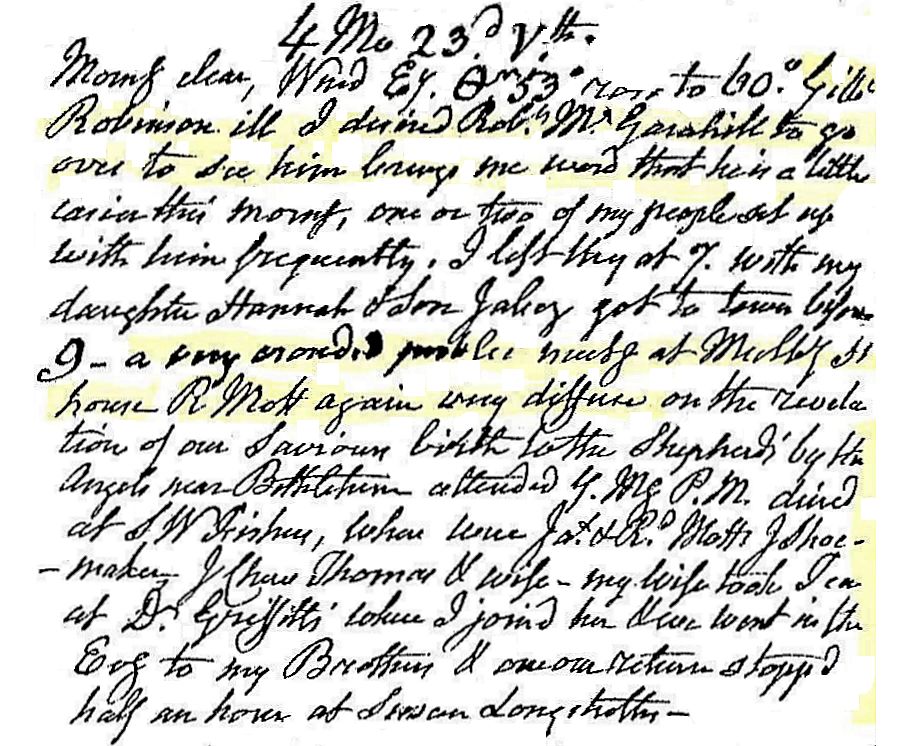 4 Mo 23d Vth.
Morng clear, Wind Ey. 53° rose to 60.° Giles
Robinson ill I desired Robt. Mc Garahill to go
over to see him brings me word that he is a little
easier this morng, one or two of my people set up
with him frequently. I left they at 7. with my
daughter Hannah & Son Jabez got to town before
9 - a very crowded public meetg at Mulby St
house R Mott again very diffuse on the revela
tion of our Saviours birth to the Shepherds by the
Angels near Bethlehem attended Y. Mg P.M. dined
at S W Fishers, where were Jas. & Rd. Motts J Shoe-
-maker, J Chew Thomas & wife - my wife took Tea
at Dr. Griffitts where I joined her & we went in the
Evg to my Brothers & on our return stopped
half an hour at Susan Longstreths -